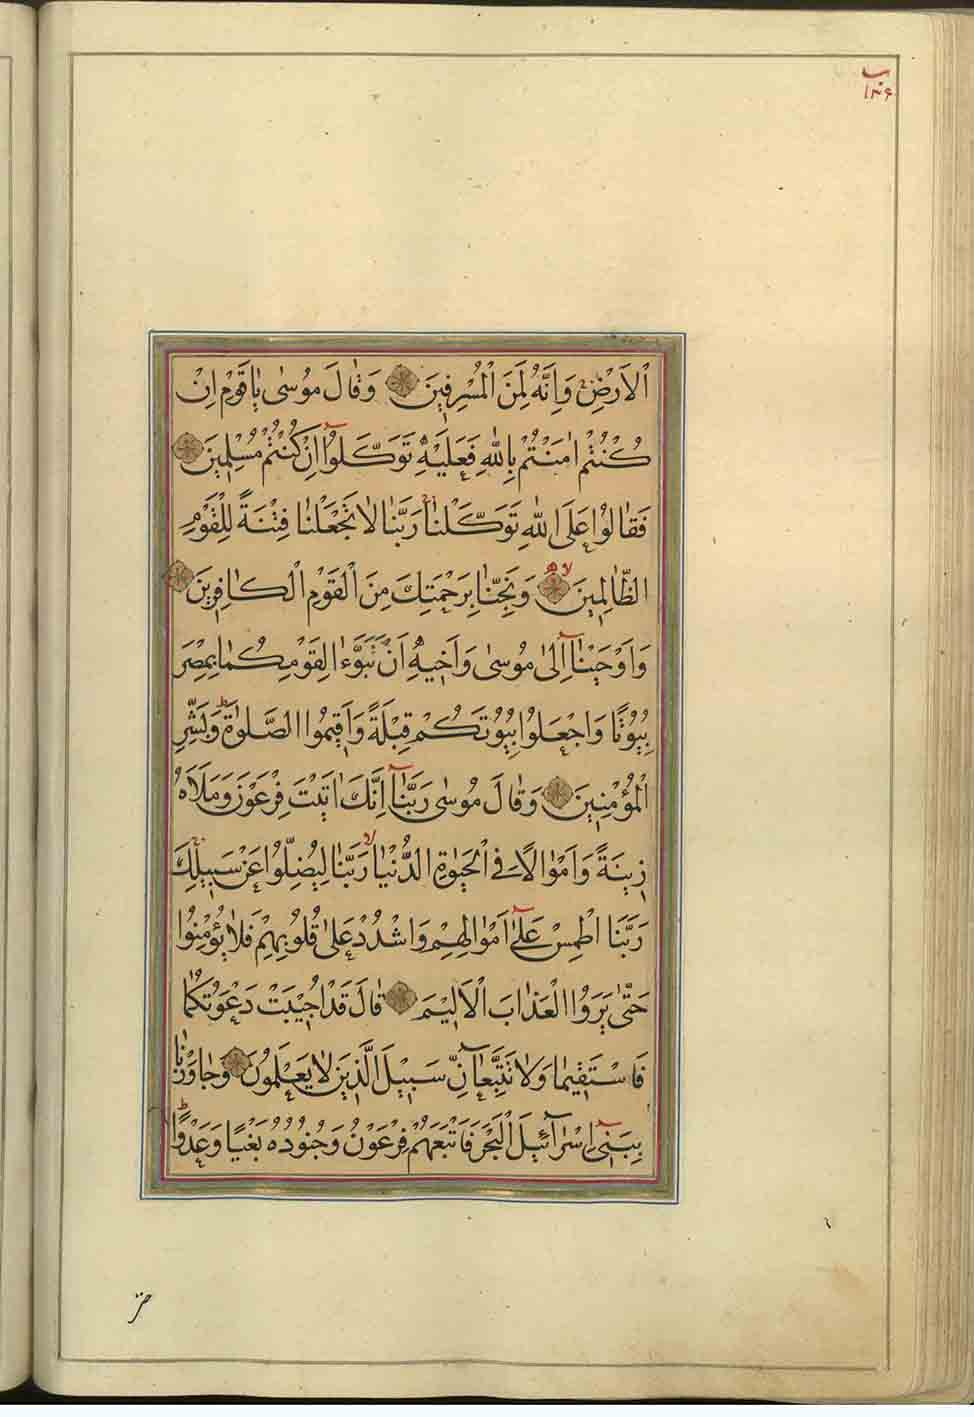 ب
١٣۶
الْاَرْضِ وَاِنَّهُ لَمِنَ الْمُسْرِفِينَ وَقَالَ مُوسٰى يَا قَوْمِ اِنْ
كُنْتُمْ اٰمَنْتُمْ بِاللّٰهِ فَعَلَيْهِ تَوَكَّلُوٓا اِنْ كُنْتُمْ مُسْلِمِينَ
فَقَالُوا عَلَى اللّٰهِ تَوَكَّلْنَا رَبَّنَا لَا تَجْعَلْنَا فِتْنَةً لِلْقَوْمِ
الظَّالِمِينَ لا وَنَجِّنَا بِرَحْمَتِكَ مِنَ الْقَوْمِ الْكَافِرِينَ
وَاَوْحَيْنَآ اِلٰى مُوسٰى وَاَخِيهِ اَنْ تَبَوَّءَا لِقَوْمِكُمَا بِمِصْرَ
بُيُوتًا وَاجْعَلُوا بُيُوتَكُمْ قِبْلَةً وَاَقِيمُوا الصَّلٰوةَ ط وَبَشِّرِ
الْمُؤْمِنِينَ وَقَالَ مُوسٰى رَبَّنَآ اِنَّكَ اٰتَيْتَ فِرْعَوْنَ وَمَلَاَهُ
زِينَةً وَاَمْوَالًا فِي الْحَيٰوةِ الدُّنْيَا لا رَبَّنَا لِيُضِلُّوا عَنْ سَبِيلِكَ
رَبَّنَا اطْمِسْ عَلٰٓى اَمْوَالِهِمْ وَاشْدُدْ عَلٰى قُلُوبِهِمْ فَلَا يُؤْمِنُوا
حَتّٰى يَرَوُا الْعَذَابَ الْاَلِيمَ قَالَ قَدْ اُجِيبَتْ دَعْوَتُكُمَا
فَاسْتَقِيمَا وَلَا تَتَّبِعَآنِّ سَبِيلَ الَّذِينَ لَا يَعْلَمُونَ وَجَاوَزْنَا
بِبَنِىٓ اِسْرَآئِيلَ الْبَحْرَ فَاَتْبَعَهُمْ فِرْعَوْنُ وَجُنُودُهُ بَغْيًا وَعَدْوًا ط